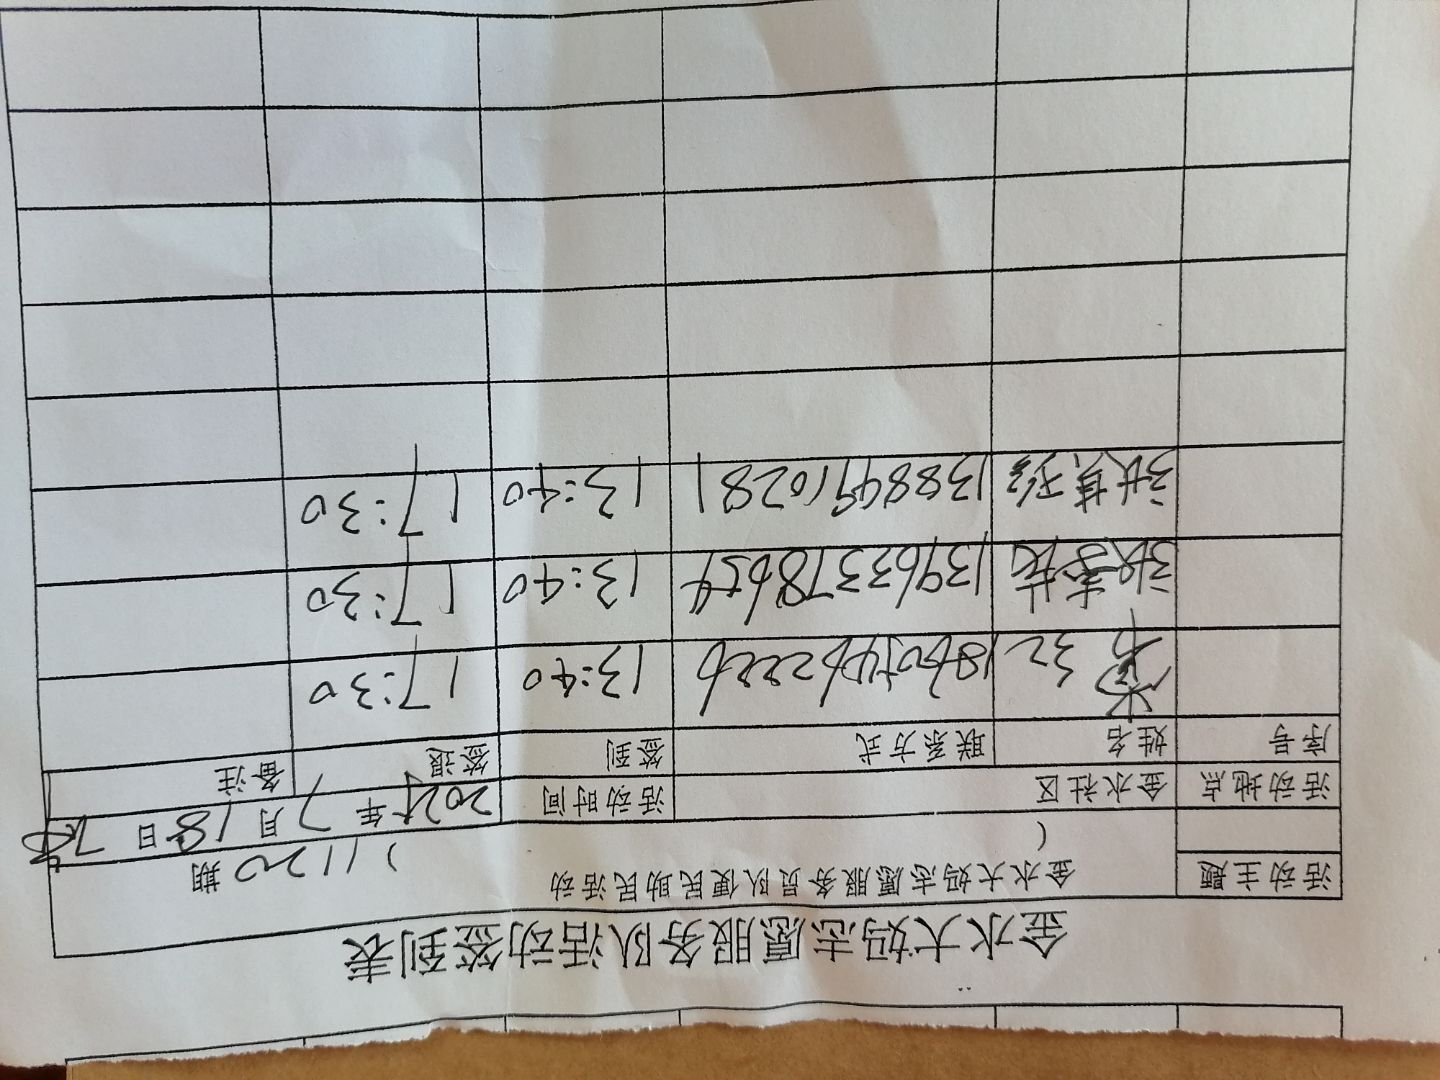 金水大妈志愿服务队活动签到表
活动主题 金水大妈志愿服务员队便民助民活动
( ) 1120 期
活动地点 金水社区 活动时间 2021年7月18日
序号 姓名 联系方式 签到 签退 备注
13:40 17:30
13963378654 13:40 17:30
13884910281 13:40 17:30